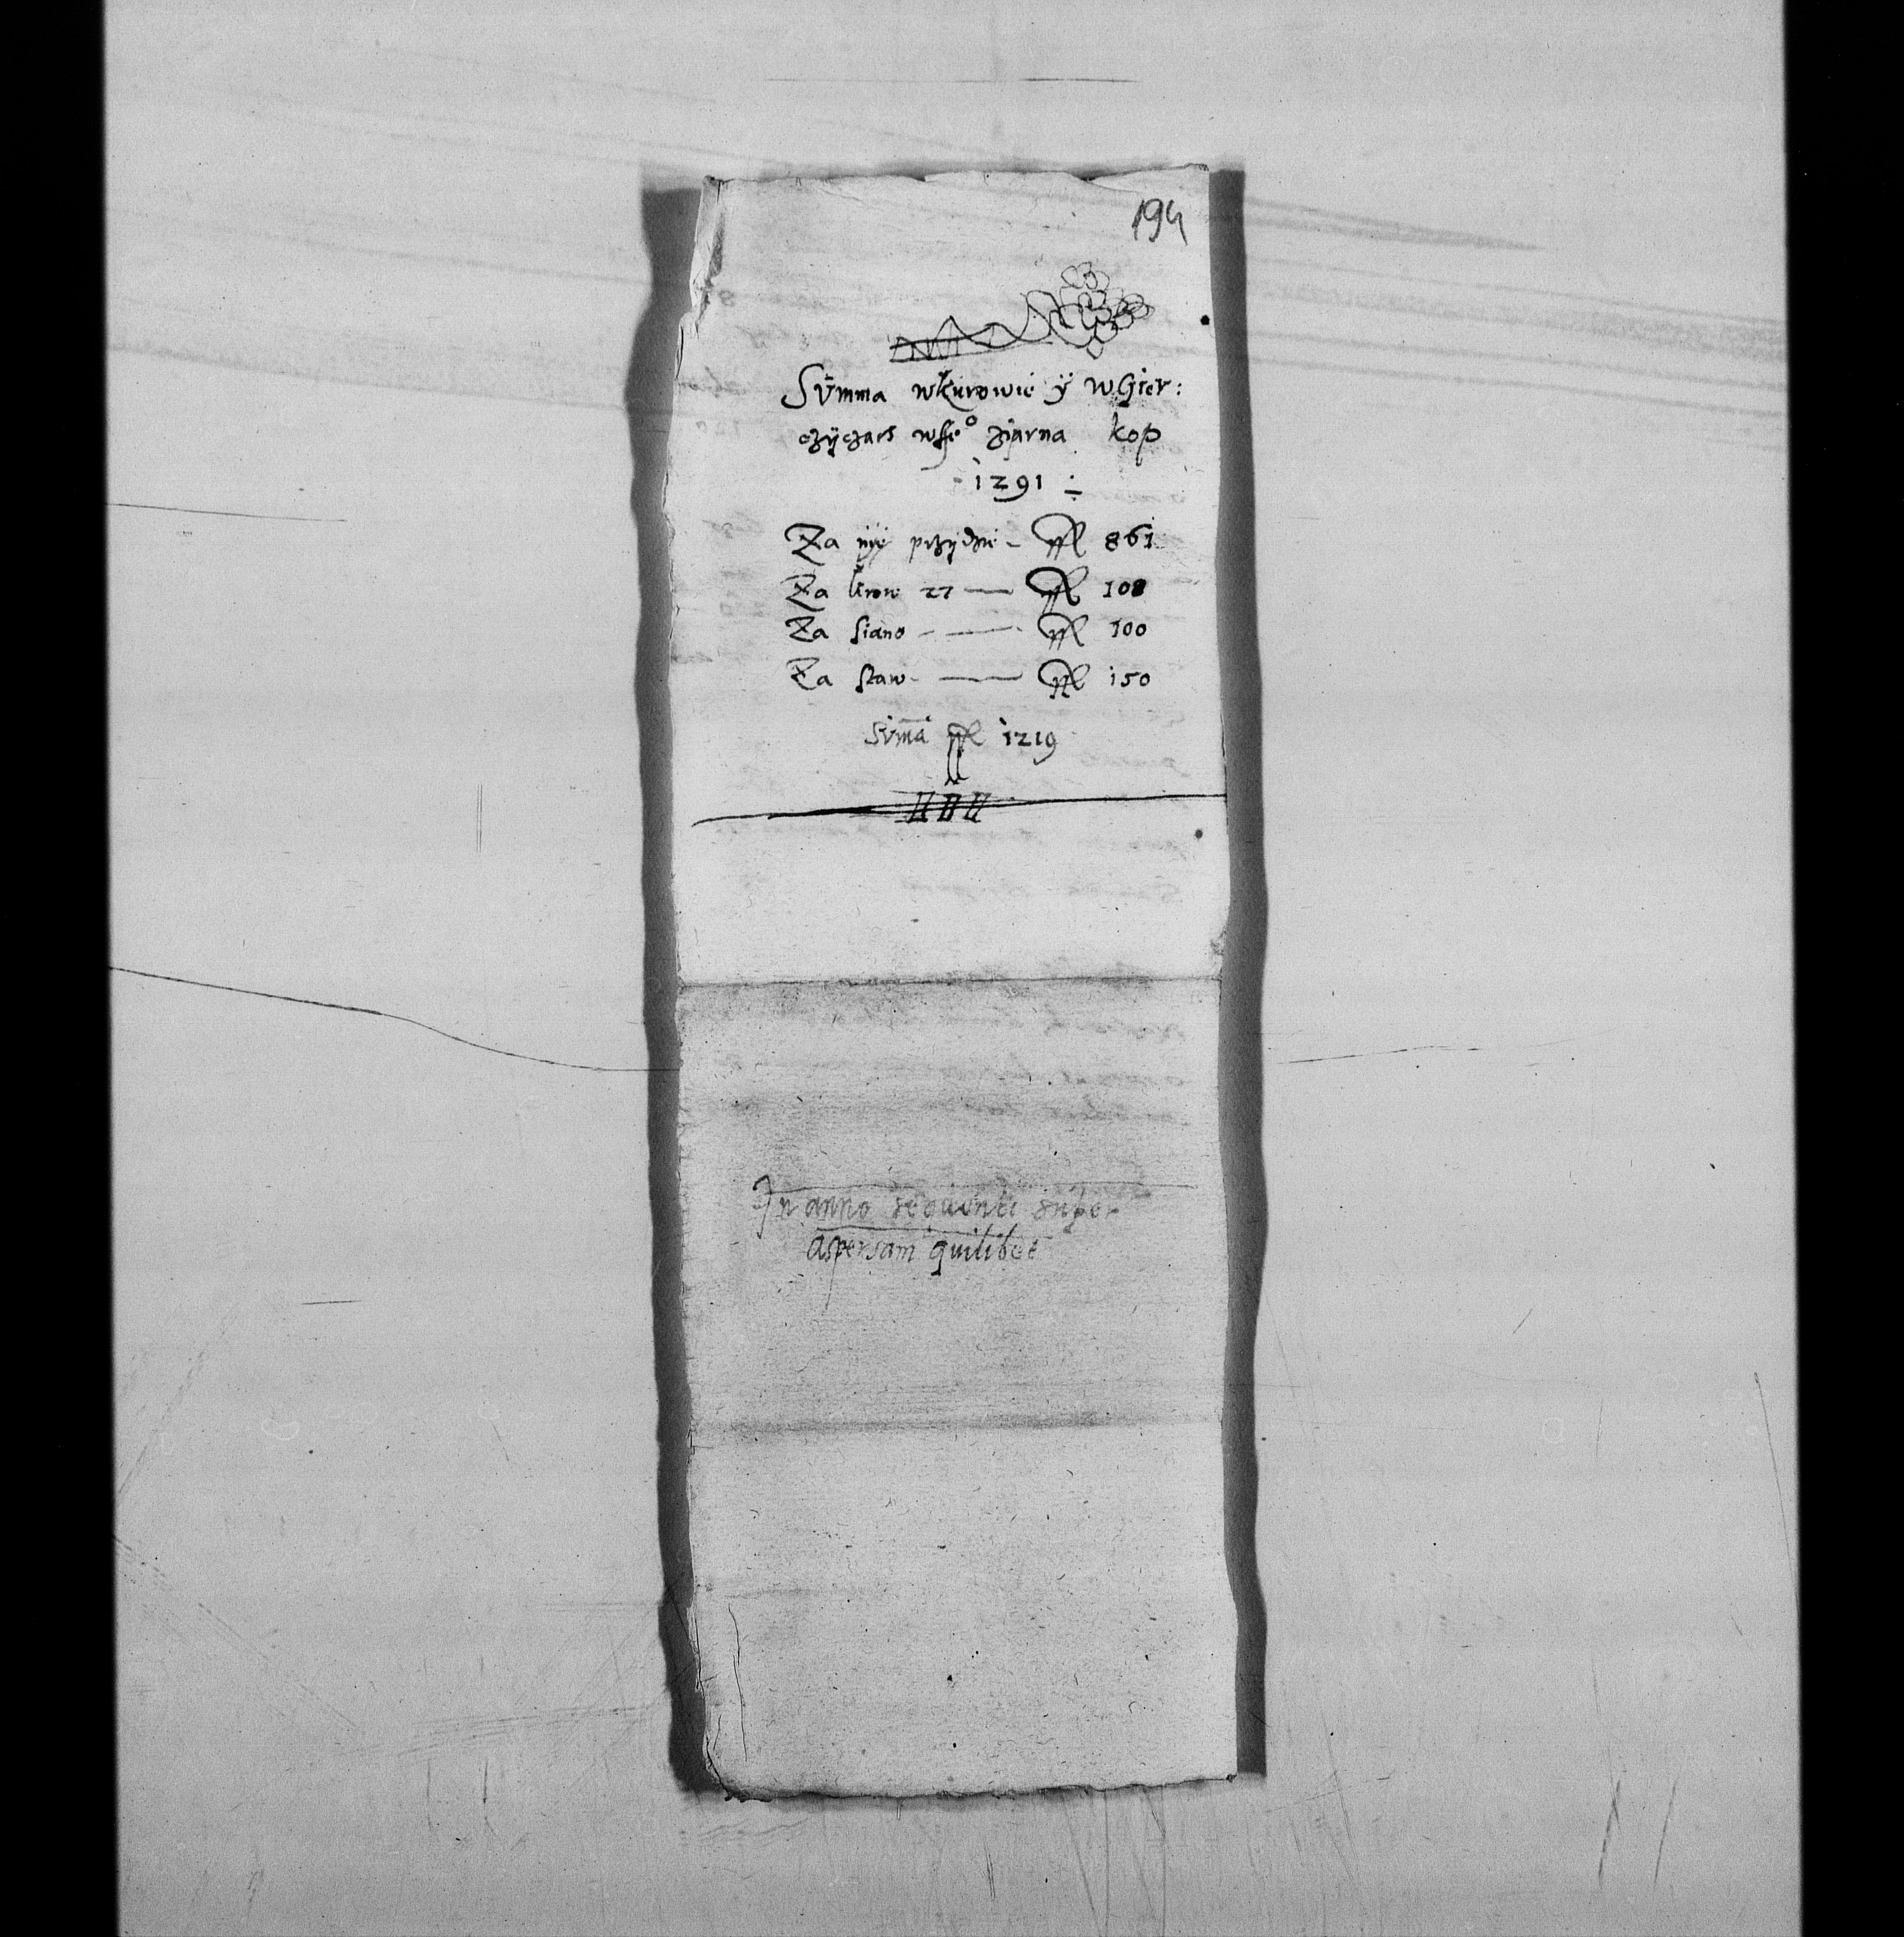 194
Summa wKurowie ÿ wGier:
czÿczach wsze° ziarna kop
1291
Za nÿe przÿdzie - fl 861
Za krow 27 — fl 108
Za siano — fl 100
Za staw — fl 150
Suma fl 1219
In anno sequenti super
aspersam quilibet